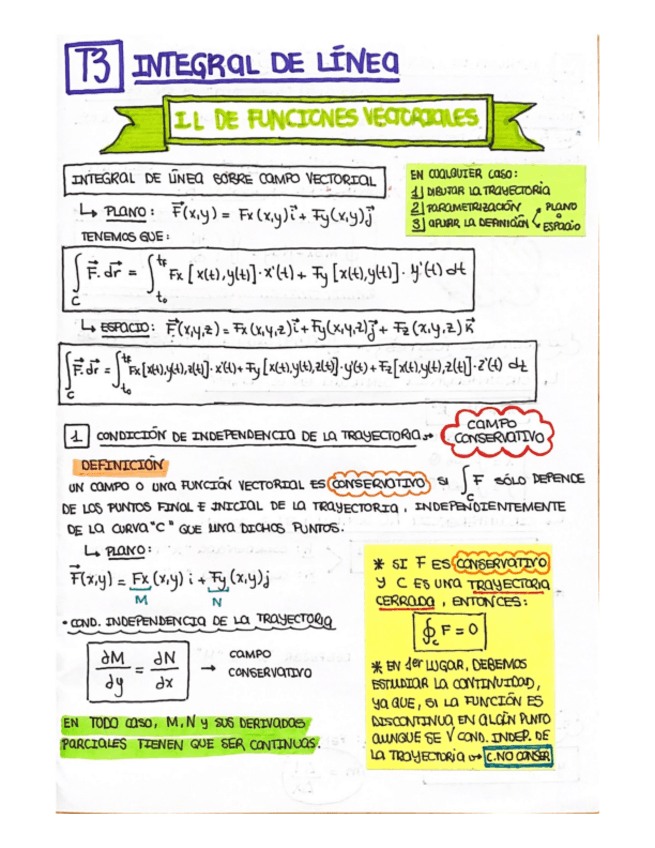 T3 INTEGRAL DE LÍNEA
I.L DE FUNCIONES VECTORIALES
INTEGRAL DE LÍNEA SOBRE CAMPO VECTORIAL
↳ PLANO: F⃗(x,y) = Fx(x,y)i⃗ + Fy(x,y)j⃗
TENEMOS QUE:
EN CUALQUIER CASO:
1) DIBUJAR LA TRAYECTORIA
2) PARAMETRIZACIÓN
3) APLICAR LA DEFINICIÓN < PLANO
ESPACIO
∫_C F⃗·dr⃗ = ∫_{t₀}^{tf} Fx[x(t),y(t)]·x'(t) + Fy[x(t),y(t)]·y'(t) dt
↳ ESPACIO: F⃗(x,y,z) = Fx(x,y,z)i⃗ + Fy(x,y,z)j⃗ + Fz(x,y,z)k⃗
∫_C F⃗·dr⃗ = ∫_{t₀}^{tf} Fx[x(t),y(t),z(t)]·x'(t) + Fy[x(t),y(t),z(t)]·y'(t) + Fz[x(t),y(t),z(t)]·z'(t) dt
1 CONDICIÓN DE INDEPENDENCIA DE LA TRAYECTORIA → CAMPO
CONSERVATIVO
DEFINICIÓN
UN CAMPO O UNA FUNCIÓN VECTORIAL ES CONSERVATIVO SI ∫_C F SÓLO DEPENDE
DE LOS PUNTOS FINAL E INICIAL DE LA TRAYECTORIA, INDEPENDIENTEMENTE
DE LA CURVA "C" QUE UNA DICHOS PUNTOS.
↳ PLANO:
F⃗(x,y) = Fx(x,y)i + Fy(x,y)j
M N
• COND. INDEPENDENCIA DE LA TRAYECTORIA
∂M/∂y = ∂N/∂x → CAMPO
CONSERVATIVO
EN TODO CASO, M, N y SUS DERIVADAS
PARCIALES TIENEN QUE SER CONTINUAS.
* SI F ES CONSERVATIVO
Y C ES UNA TRAYECTORIA
CERRADA, ENTONCES:
∮_C F = 0
* EN 1er LUGAR, DEBEMOS
ESTUDIAR LA CONTINUIDAD,
YA QUE, SI LA FUNCIÓN ES
DISCONTINUA EN ALGÚN PUNTO
AUNQUE SE √ COND. INDEP. DE
LA TRAYECTORIA → C. NO CONSER